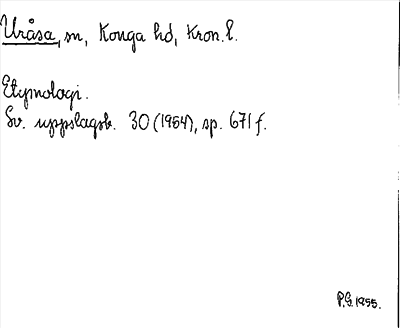 Uråsa, sn, Konga hd, Kron. l.
Etymologi.
Sv. uppslagsb. 30 (1954), sp. 671 f.
P.G. 1955.